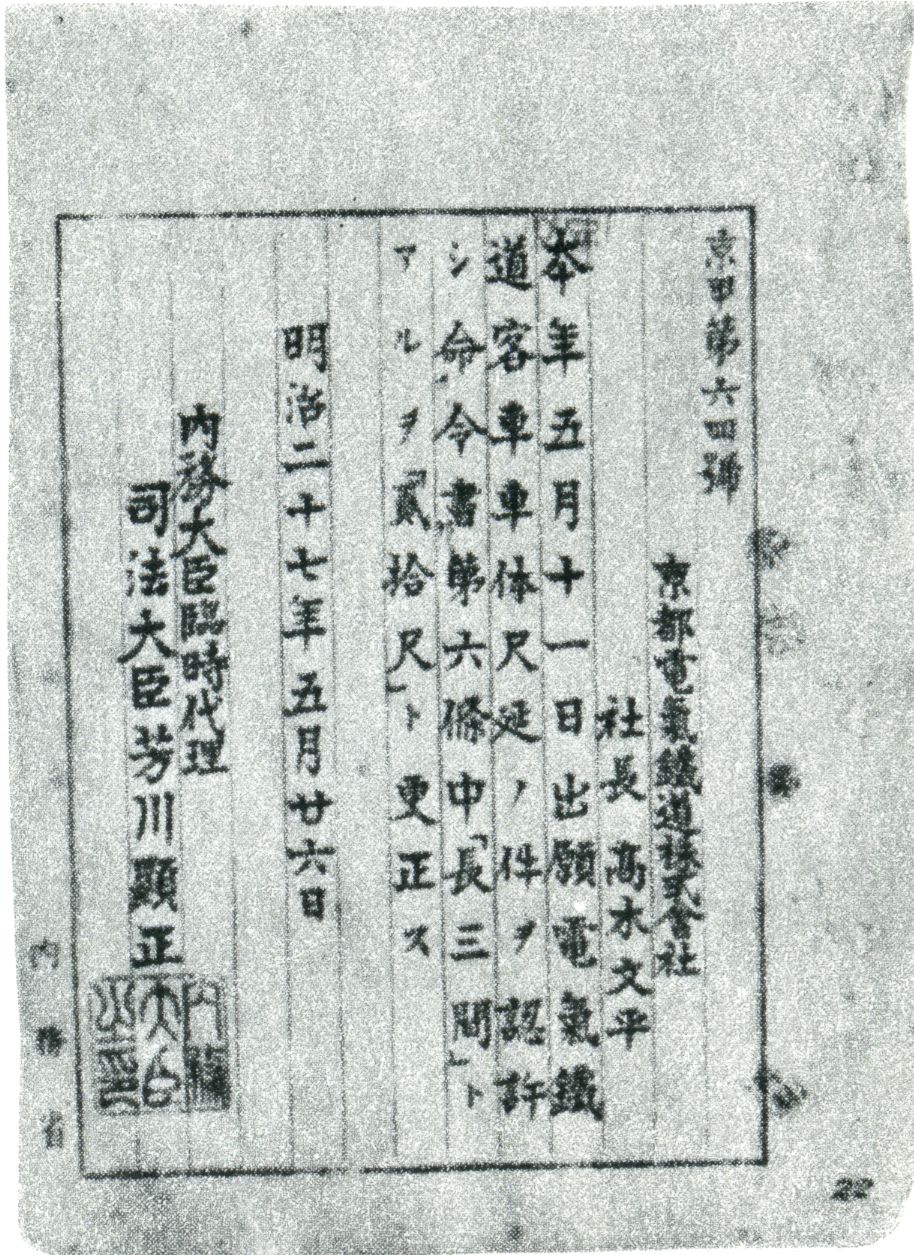 京甲第六四號
京都電氣鐵道株式會社
社長 高木文平
本年五月十一日出願電氣鐵
道客車車体尺延ノ件ヲ認許
シ命令書第六條中「長三間」ト
アルヲ「貳拾尺」ト更正ス
明治二十七年五月廿六日
内務大臣臨時代理
司法大臣芳川顯正
内務
大臣
之印
内務省
22